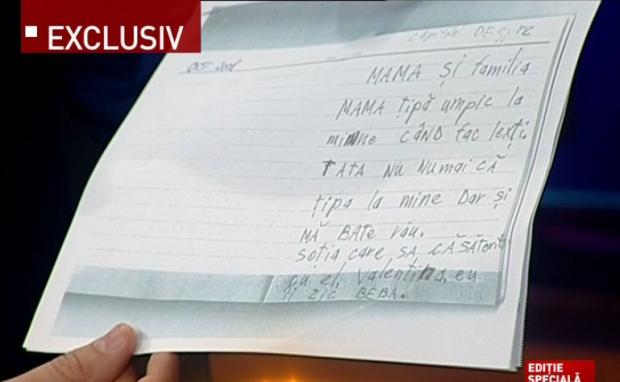 EXCLUSIV
DESPre
MAMA și familia
MAMA țipă umpic la
mine CÂND fac lexți.
TATA NU NumAi CĂ
țipa la mine Dar și
MĂ BATe rău.
soția care SA CĂSĂTorit
cu el, Valentina, eu
îi zic BEBA.
EDIȚIE
SPECIALĂ